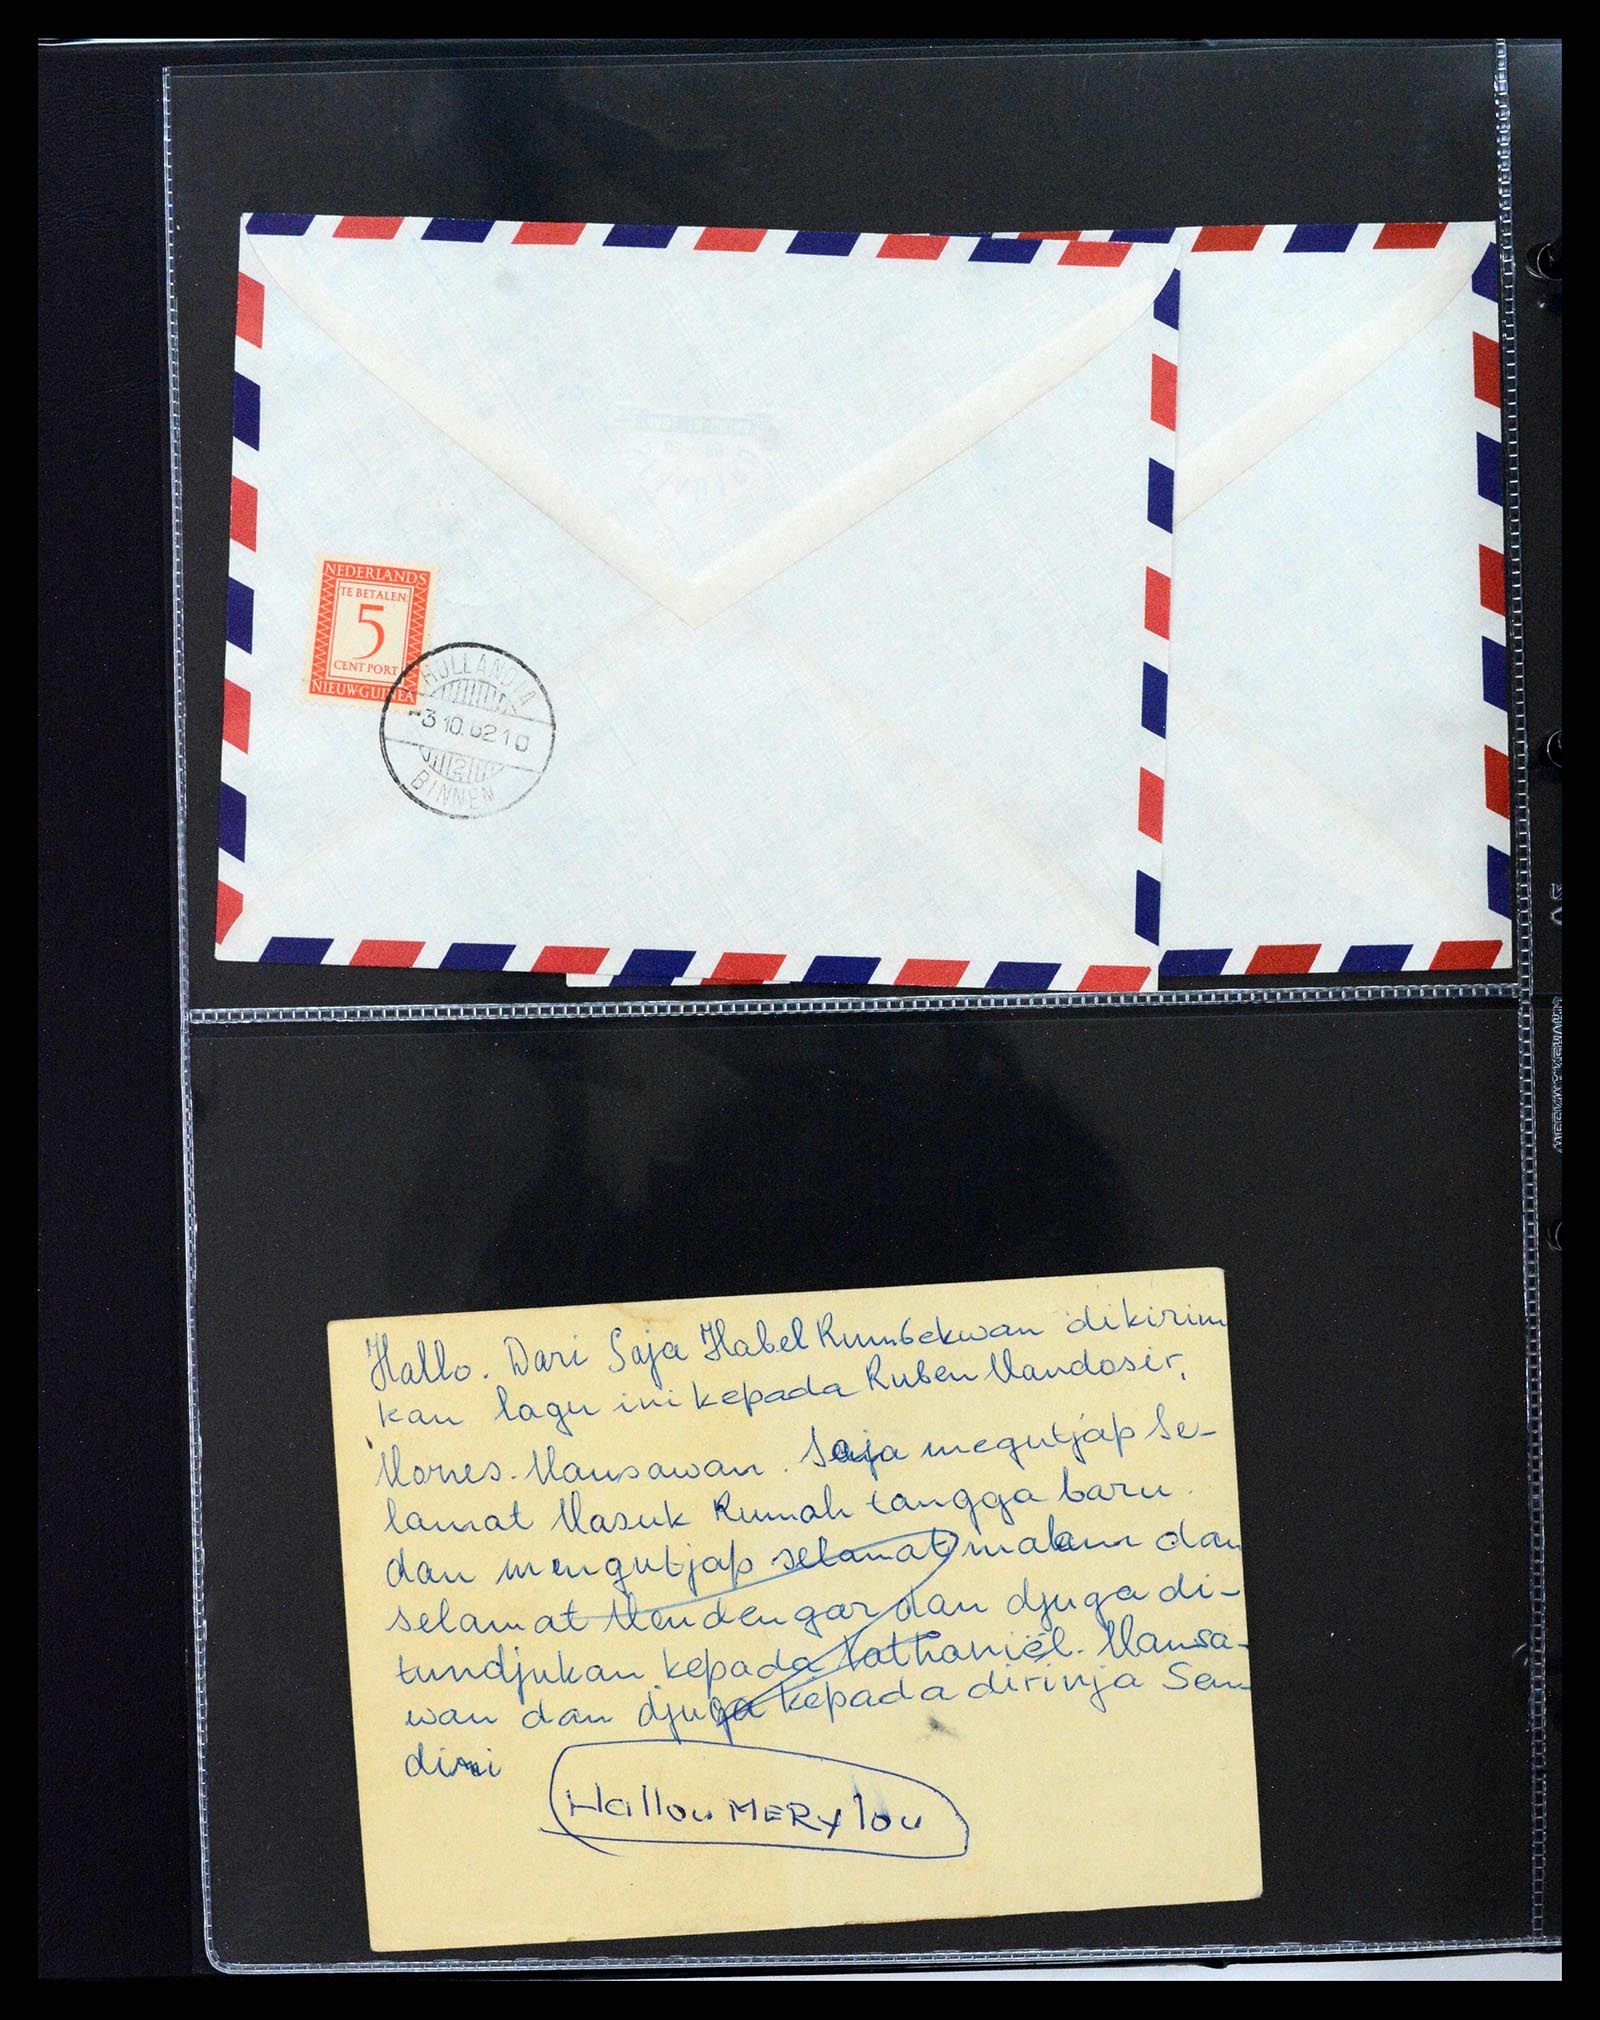 NEDERLANDS
TE BETALEN
5
CENT PORT
NIEUW-GUINEA
HOLLANDIA
-3.10.62 10
2
BINNEN
Hallo. Dari Saja Habel Rumbekwan dikirim
kan lagu ini kepada Ruben Mandosir,
Mones. Mansawan. Saja megutjap Se-
lamat Masuk Rumah tangga baru.
dan mengutjap selamat malam dan
selamat Mendengar dan djuga di-
tundjukan kepada Nathaniël. Mansa-
wan dan djuga kepada dirinja Sen
diri
Hallou MERY lou